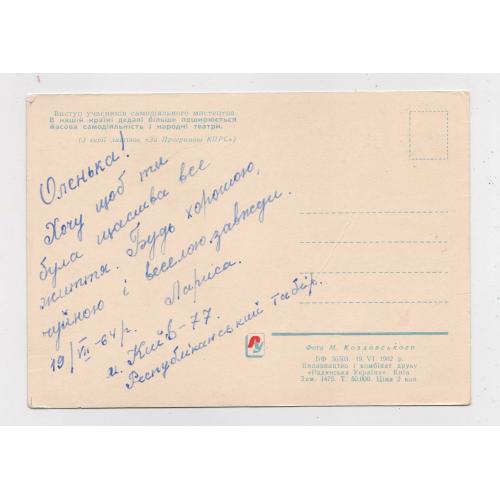 Виступ учасників самодіяльного мистецтва.
В нашій країні дедалі більше поширюється
масова самодіяльність і народні театри.
(З серії листівок «За Програмою КПРС»)
Оленька!
Хочу щоб ти
була щаслива все
життя. Будь хорошою,
чуйною і веселою завжди.
Лариса.
19/VII-64 р.
м. Київ-77.
Республіканський табір.
Фото М. Козловського
БФ 36503. 19. VI. 1962 р.
Видавництво і комбінат друку
«Радянська Україна». Київ
Зам. 1475. Т. 50.000. Ціна 3 коп